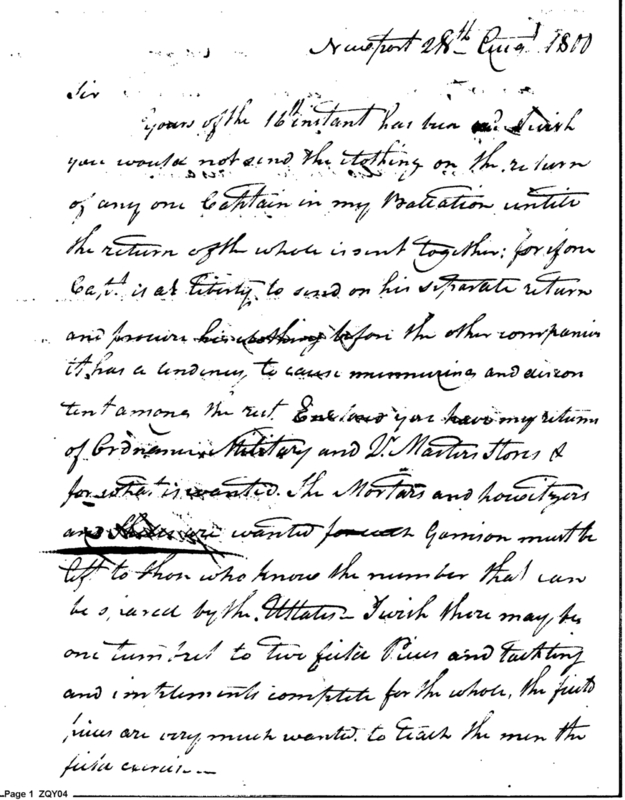 Newport 28th Augt 1800
Sir
Yours of the 16th instant has been I wish
you would not send the clothing on the return
of any one Captain in my Battalion untill
the return of the whole is sent together; for if one
Capt. is at liberty to send on his separate return
and procure his clothing before the other companies
it has a tendency to cause murmuring and discon
tent among the rest. Enclosed you have my returns
of Ordnance Military and Qr Masters Stores &
for what is wanted. The Mortars and howitzers
are wanted for each Garrison must be
left to those who know the number that can
be spared by the UStates – I wish there may be
one tumbrel to two field Pieces and Tackling
and implements complete for the whole, the field
pieces are very much wanted to teach the men the
field exercise –
Page 1 ZQY04